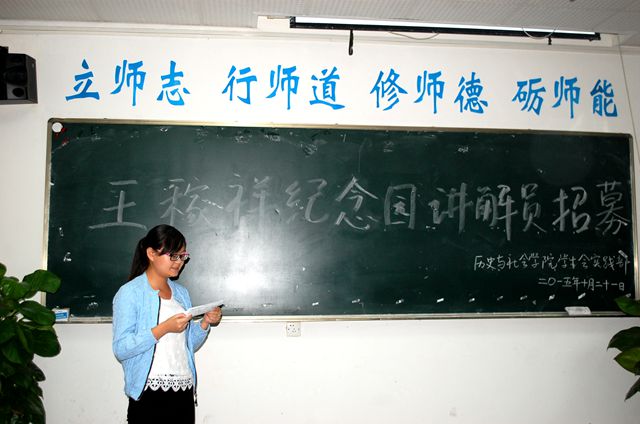 立师志 行师道 修师德 砺师能
王稼祥纪念园讲解员招募
历史与社会学院学生会实践部
二〇一五年十月二十一日